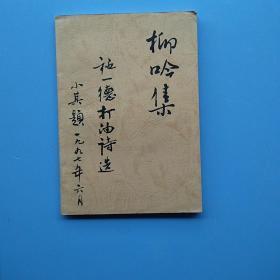 柳吟集
祐一德打油诗选
小其题 一九九七年六月